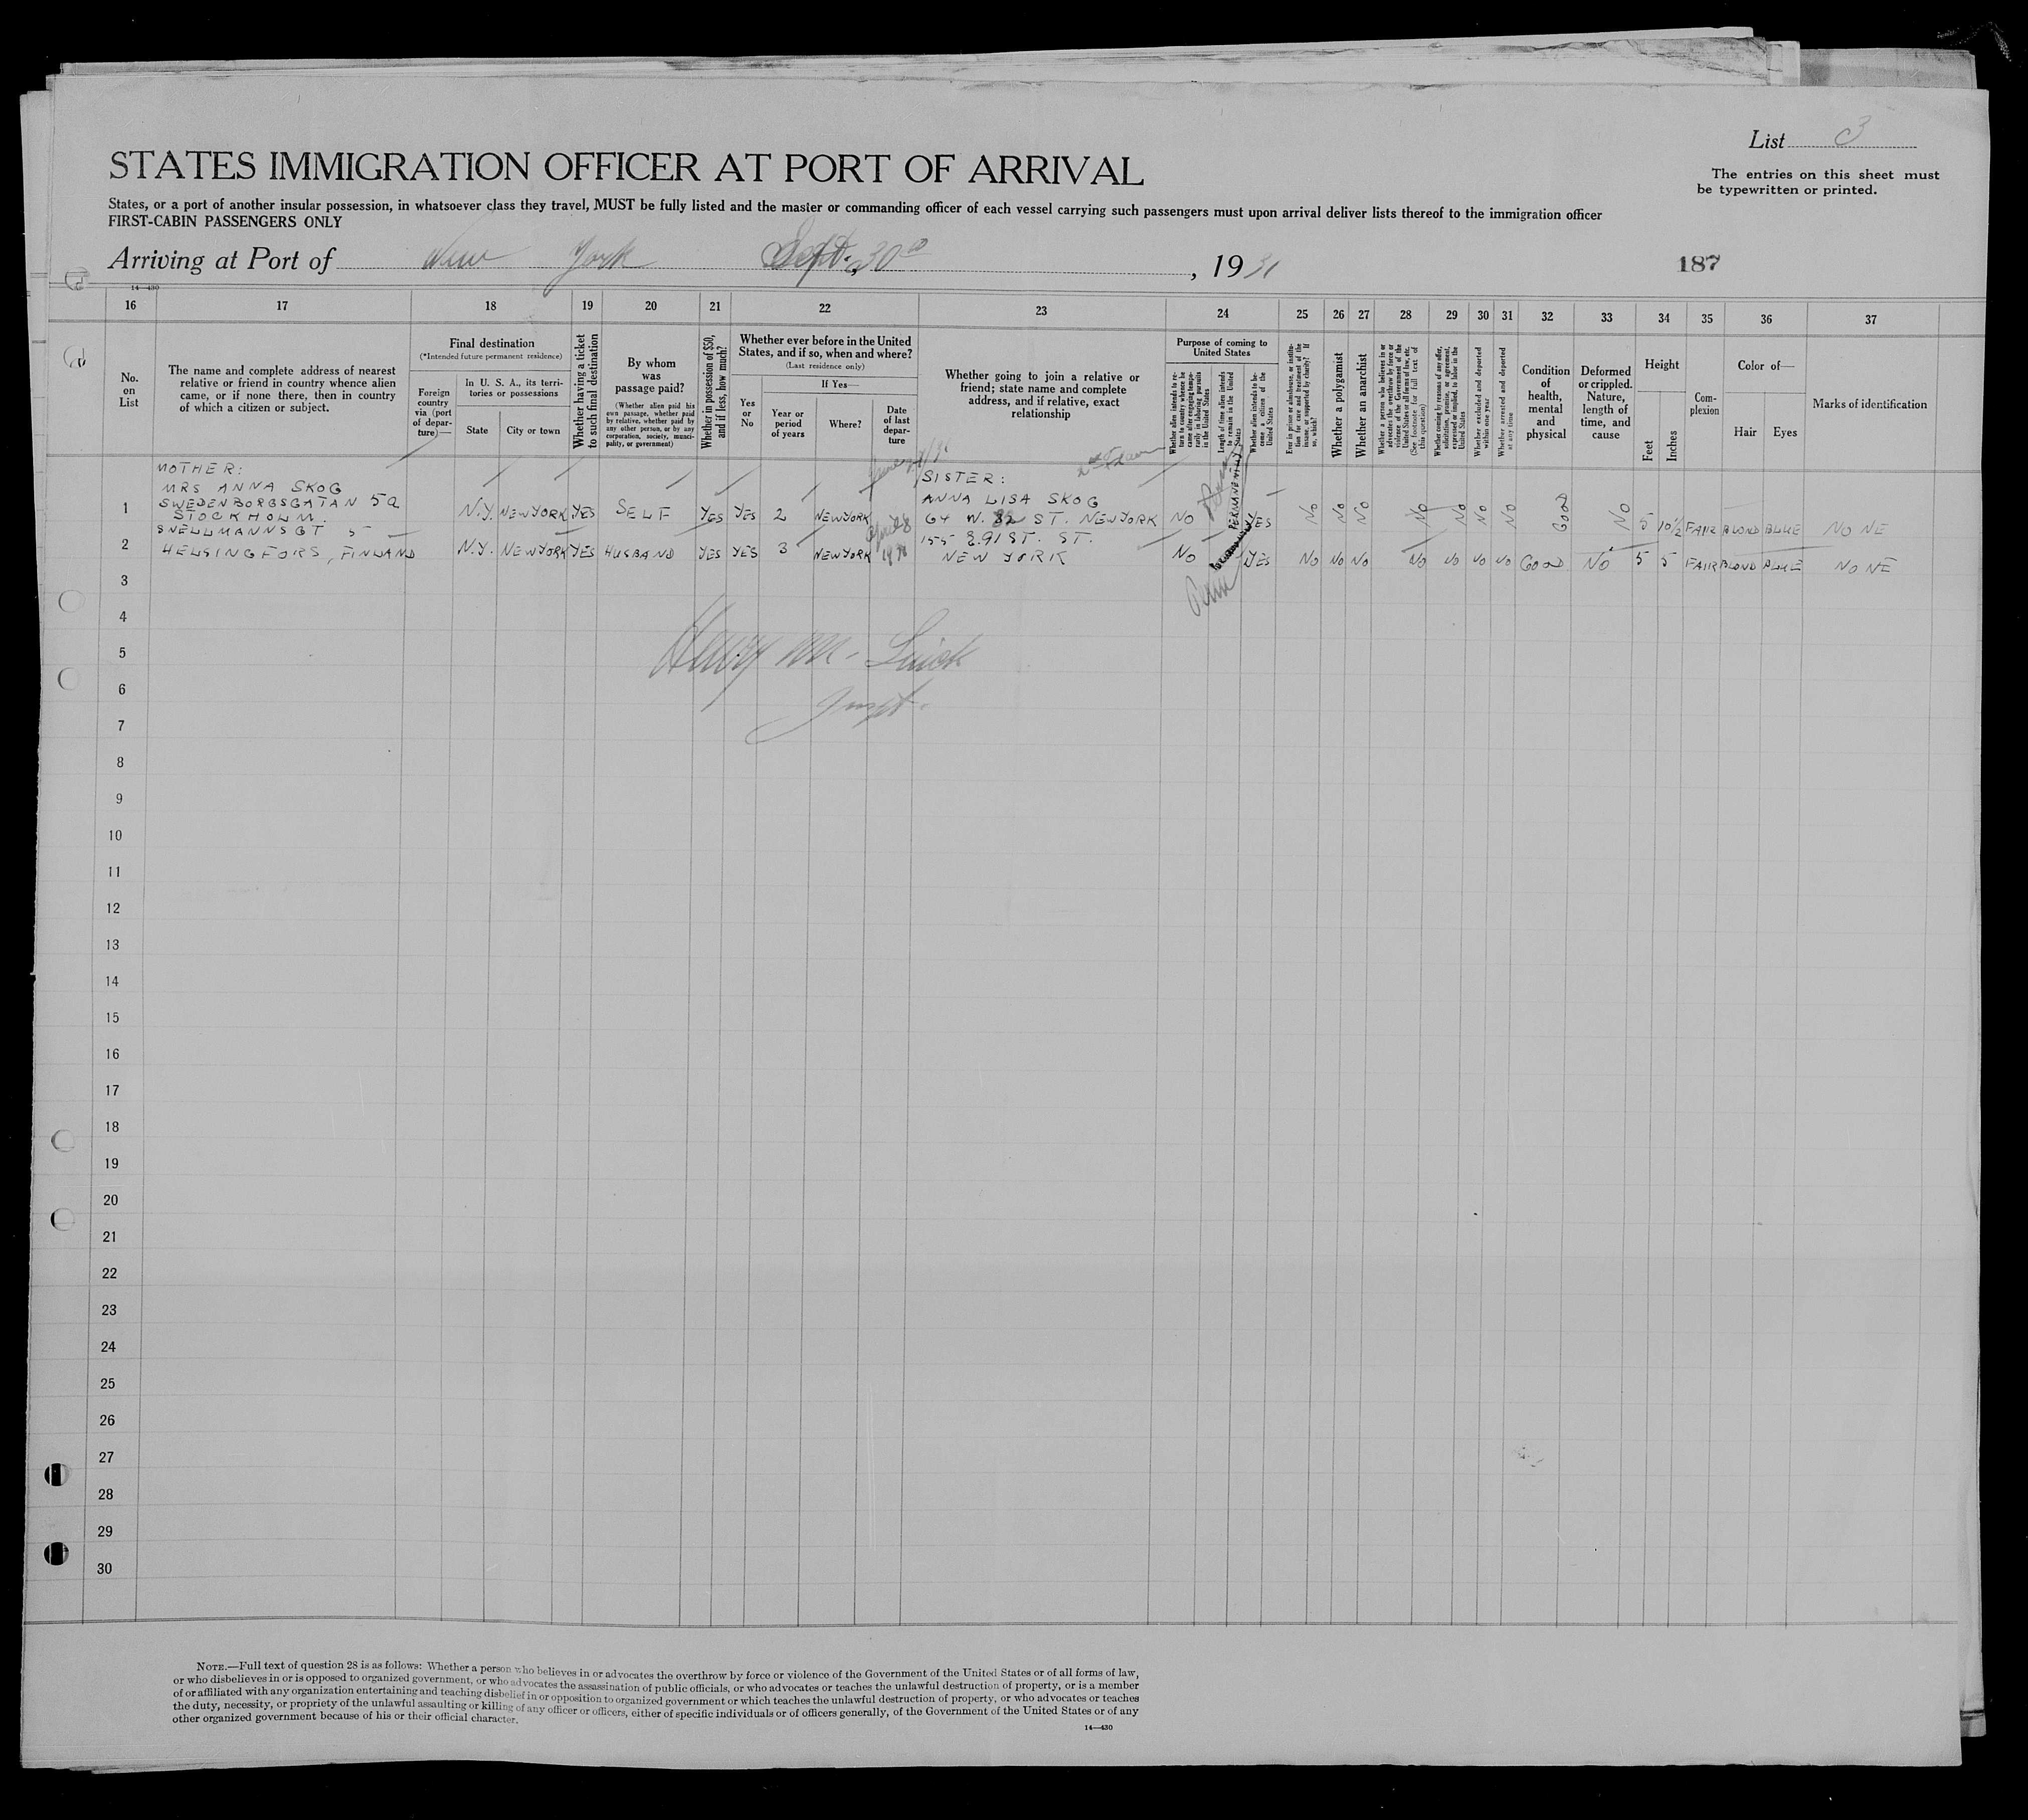 List 3
STATES IMMIGRATION OFFICER AT PORT OF ARRIVAL
The entries on this sheet must
be typewritten or printed.
States, or a port of another insular possession, in whatsoever class they travel, MUST be fully listed and the master or commanding officer of each vessel carrying such passengers must upon arrival deliver lists thereof to the immigration officer
FIRST-CABIN PASSENGERS ONLY
Arriving at Port of New York Sept. 30, 1931
187
14—430
16 17 18 19 20 21 22 23 24 25 26 27 28 29 30 31 32 33 34 35 36 37
No. on List
The name and complete address of nearest
relative or friend in country whence alien
came, or if none there, then in country
of which a citizen or subject.
Final destination
(*Intended future permanent residence)
Foreign country via (port of departure)—
In U. S. A., its territories or possessions
State
City or town
Whether having a ticket to such final destination
By whom was passage paid?
(Whether alien paid his own passage, whether paid by relative, whether paid by any other person, or by any corporation, society, municipality, or government)
Whether in possession of $50, and if less, how much?
Whether ever before in the United States, and if so, when and where?
(Last residence only)
Yes or No
If Yes—
Year or period of years
Where?
Date of last departure
Whether going to join a relative or
friend; state name and complete
address, and if relative, exact
relationship
Purpose of coming to United States
Whether alien intends to return to country whence he came after engaging temporarily in laboring pursuits in the United States
Length of time alien intends to remain in the United States
Whether alien intends to become a citizen of the United States
Ever in prison or almshouse, or institution for care and treatment of the insane, or supported by charity? If so, which?
Whether a polygamist
Whether an anarchist
Whether a person who believes in or advocates the overthrow by force or violence of the Government of the United States or all forms of law, etc. (See footnote for full text of this question)
Whether coming by reasons of any offer, solicitation, promise, or agreement, expressed or implied, to labor in the United States
Whether excluded and deported within one year
Whether arrested and deported at any time
Condition of health, mental and physical
Deformed or crippled. Nature, length of time, and cause
Height
Feet
Inches
Complexion
Color of—
Hair
Eyes
Marks of identification
1 MOTHER:
MRS ANNA SKOG
SWEDENBORGSGATAN 5a
STOCKHOLM.
N.Y. NEW YORK YES SELF YES YES 2 NEW YORK
SISTER:
ANNA LISA SKOG
64 W. 82 ST. NEW YORK
NO PERMANENTLY YES NO NO NO NO NO NO NO GOOD NO 5 10½ FAIR BLOND BLUE NONE
2 SNELLMANNSGT 5
HELSINGFORS, FINLAND
N.Y. NEW YORK YES HUSBAND YES YES 3 NEW YORK
155 E. 91 ST. ST.
NEW YORK
NO YES NO NO NO NO NO NO NO GOOD NO 5 5 FAIR BLOND BLUE NONE
Perm
3
4
5
Henry M. Luick
6
Inspt.
7
8
9
10
11
12
13
14
15
16
17
18
19
20
21
22
23
24
25
26
27
28
29
30
NOTE.—Full text of question 28 is as follows: Whether a person who believes in or advocates the overthrow by force or violence of the Government of the United States or of all forms of law,
or who disbelieves in or is opposed to organized government, or who advocates the assassination of public officials, or who advocates or teaches the unlawful destruction of property, or is a member
of or affiliated with any organization entertaining and teaching disbelief in or opposition to organized government or which teaches the unlawful destruction of property, or who advocates or teaches
the duty, necessity, or propriety of the unlawful assaulting or killing of any officer or officers, either of specific individuals or of officers generally, of the Government of the United States or of any
other organized government because of his or their official character.
14—430